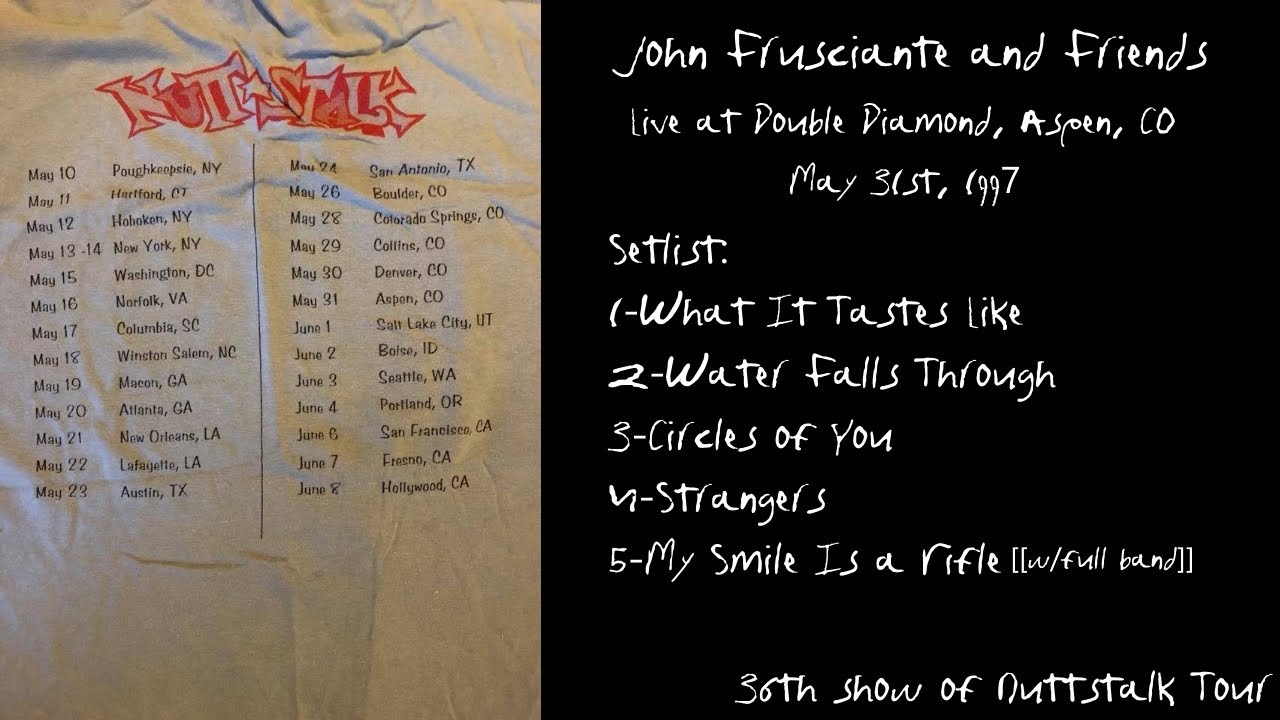 NUTT★STALK
May 10 Poughkeepsie, NY
May 11 Hartford, CT
May 12 Hoboken, NY
May 13 -14 New York, NY
May 15 Washington, DC
May 16 Norfolk, VA
May 17 Columbia, SC
May 18 Winston Salem, NC
May 19 Macon, GA
May 20 Atlanta, GA
May 21 New Orleans, LA
May 22 Lafayette, LA
May 23 Austin, TX
May 24 San Antonio, TX
May 26 Boulder, CO
May 28 Colorado Springs, CO
May 29 Collins, CO
May 30 Denver, CO
May 31 Aspen, CO
June 1 Salt Lake City, UT
June 2 Boise, ID
June 3 Seattle, WA
June 4 Portland, OR
June 6 San Francisco, CA
June 7 Fresno, CA
June 8 Hollywood, CA
John Frusciante and Friends
Live at Double Diamond, Aspen, CO
May 31st, 1997
Setlist:
1-What It Tastes Like
2-Water Falls Through
3-Circles of You
4-Strangers
5-My Smile Is a Rifle [[w/full band]]
36th show of Nuttstalk Tour